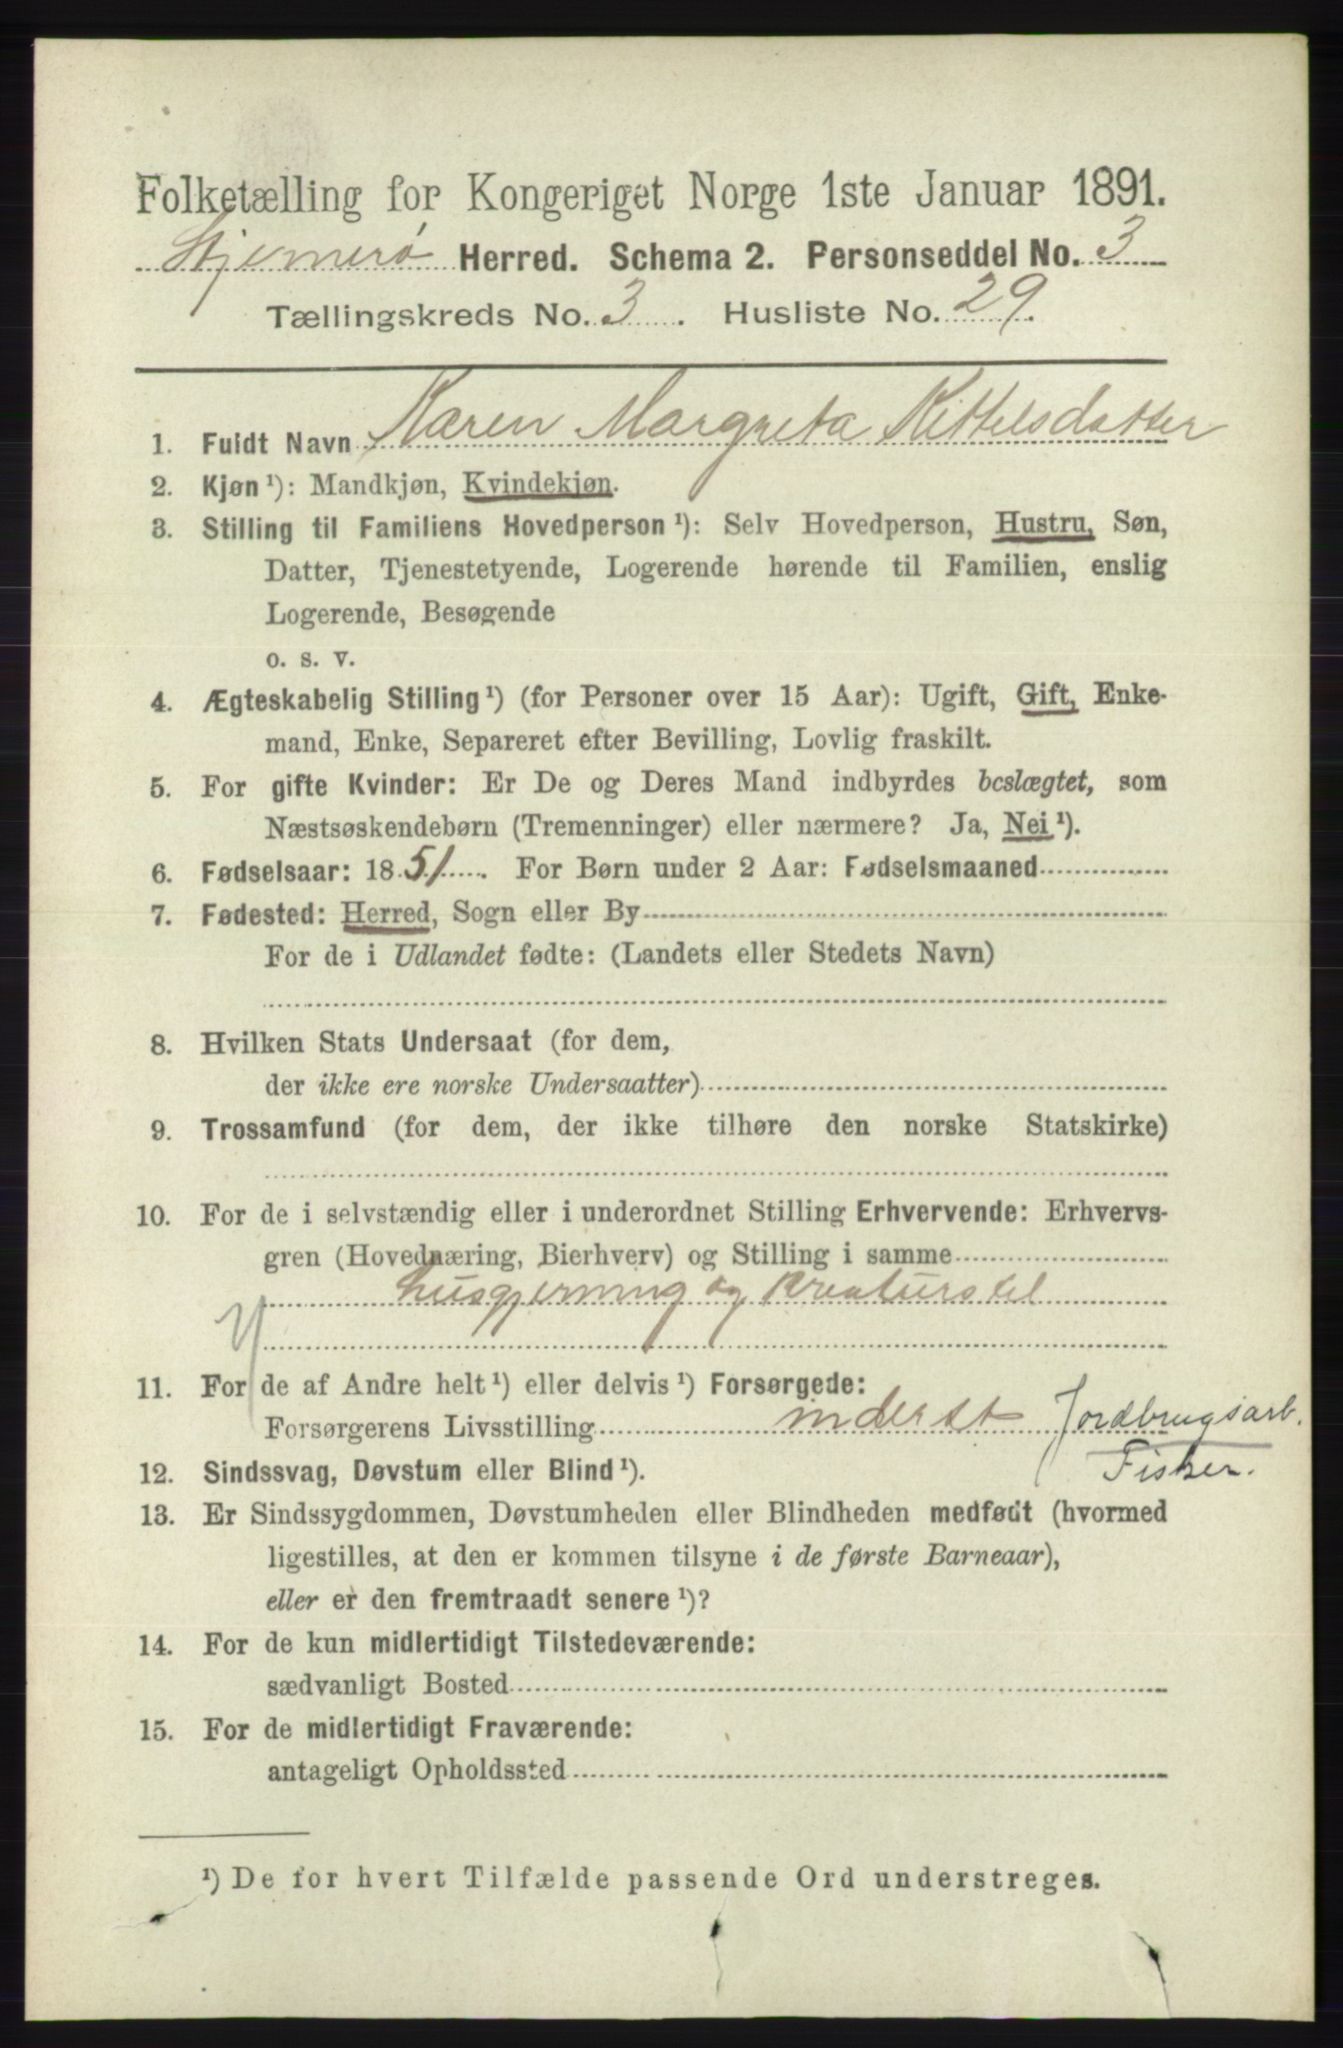 Folketælling for Kongeriget Norge 1ste Januar 1891.
Stjernerø Herred. Schema 2. Personseddel No. 3
Tællingskreds No. 3. Husliste No. 29.
1. Fuldt Navn Karen Margreta Kittelsdatter
2. Kjøn¹): Mandkjøn, Kvindekjøn.
3. Stilling til Familiens Hovedperson¹): Selv Hovedperson, Hustru, Søn,
Datter, Tjenestetyende, Logerende hørende til Familien, enslig
Logerende, Besøgende
o. s. v.
4. Ægteskabelig Stilling¹) (for Personer over 15 Aar): Ugift, Gift, Enke-
mand, Enke, Separeret efter Bevilling, Lovlig fraskilt.
5. For gifte Kvinder: Er De og Deres Mand indbyrdes beslægtet, som
Næstsøskendebørn (Tremenninger) eller nærmere? Ja, Nei¹).
6. Fødselsaar: 1851. For Børn under 2 Aar: Fødselsmaaned
7. Fødested: Herred, Sogn eller By
For de i Udlandet fødte: (Landets eller Stedets Navn)
8. Hvilken Stats Undersaat (for dem,
der ikke ere norske Undersaatter)
9. Trossamfund (for dem, der ikke tilhøre den norske Statskirke)
10. For de i selvstændig eller i underordnet Stilling Erhvervende: Erhvervs-
gren (Hovednæring, Bierhverv) og Stilling i samme
husgjerning og Kreaturstel
11. For de af Andre helt¹) eller delvis¹) Forsørgede:
Forsørgerens Livsstilling inderst Jordbrugsarb.
Fisker.
12. Sindssvag, Døvstum eller Blind¹).
13. Er Sindssygdommen, Døvstumheden eller Blindheden medfødt (hvormed
ligestilles, at den er kommen tilsyne i de første Barneaar),
eller er den fremtraadt senere¹)?
14. For de kun midlertidigt Tilstedeværende:
sædvanligt Bosted
15. For de midlertidigt Fraværende:
antageligt Opholdssted
¹) De for hvert Tilfælde passende Ord understreges.